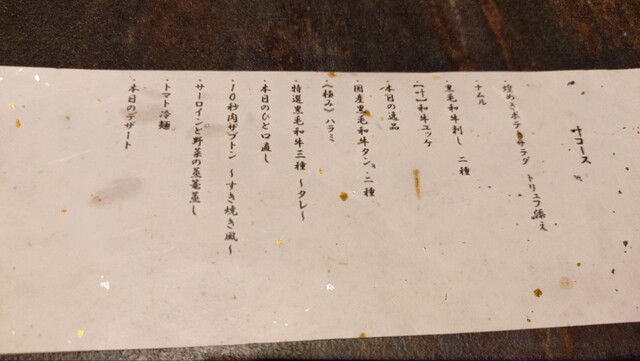 叶コース
・煌めきポテトサラダ トリュフ添え
・ナムル
・黒毛和牛刺し 二種
・【叶】和牛ユッケ
・本日の逸品
・国産黒毛和牛タン 二種
・《極み》ハラミ
・特選黒毛和牛三種 ～タレ～
・本日のひと口直し
・10秒肉ザブトン ～すき焼き風～
・サーロインと野菜の蒸篭蒸し
・トマト冷麺
・本日のデザート